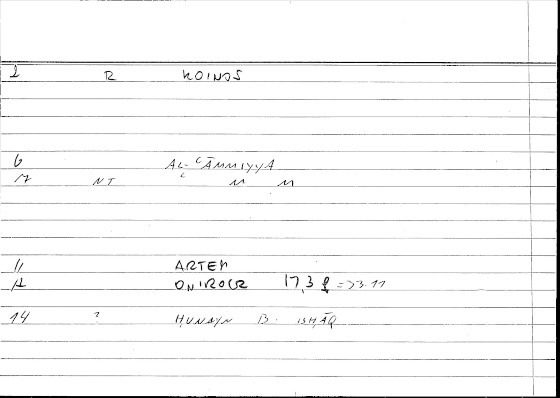 2 R KOINOS
6 AL-ʿĀMMIYYA
17 NT ʿ
11 ARTEM
12 ONIROCR 17,3
14 ? ḤUNAYN B. ISḤĀQ